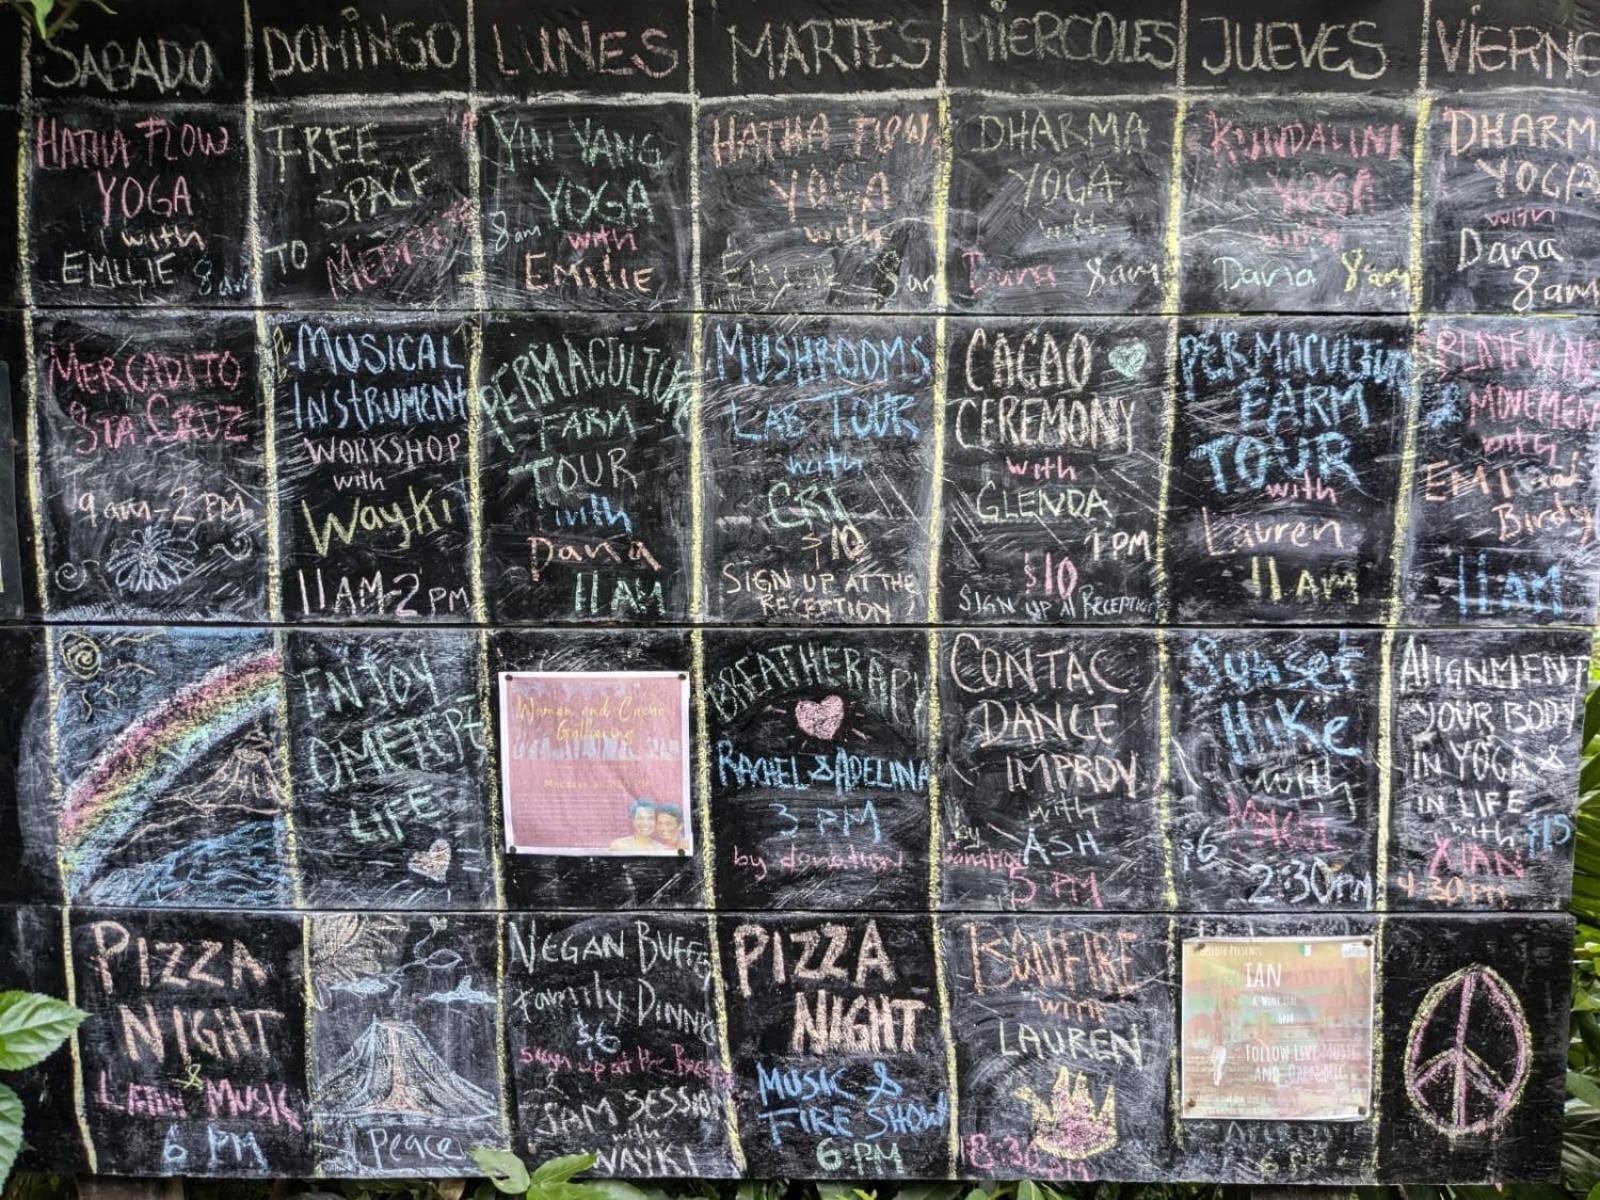 SABADO
DOMINGO
LUNES
MARTES
MIERCOLES
JUEVES
VIERNE
HATHA FLOW
YOGA
with
EMILIE 8am
FREE
SPACE
TO MEDITATE
YIN YANG
YOGA
8am with
EMILIE
HATHA FLOW
YOGA
with
EMILIE 8am
DHARMA
YOGA
with
Dana 8am
KUNDALINI
YOGA
with
Dana 8am
DHARM
YOGA
with
Dana
8am
MERCADITO
STA CRUZ
9am-2PM
MUSICAL
INSTRUMENT
WORKSHOP
with
WayKi
11AM-2PM
PERMACULTURE
FARM
TOUR
with
Dana
11AM
MUSHROOMS
LAB TOUR
with
CRI
$10
SIGN UP AT THE
RECEPTION
CACAO
CEREMONY
with
GLENDA
1PM
$10
SIGN UP AT RECEPTION
PERMACULTURE
FARM
TOUR
with
Lauren
11AM
PLAYFULNE
MOVEMEN
with
EMI and
Birdsy
11AM
ENJOY
OMETEPE
LIFE
Women and Cacao
Gathering
BREATHERAPY
RACHEL & ADELINA
3 PM
by donation
CONTAC
DANCE
IMPROV
with
by donation ASH
5 PM
Sunset
Hike
with
$6
2:30PM
ALIGNMENT
YOUR BODY
IN YOGA &
IN LIFE
with $15
XIAN
4:30PM
PIZZA
NIGHT
&
LATIN MUSIC
6 PM
Peace
VEGAN BUFFE
Family DINNE
$6
sign up at the Recep
JAM SESSION
with
WAYKI
PIZZA
NIGHT
MUSIC &
FIRE SHOW
6PM
BONFIRE
with
LAUREN
8:30PM
PRESENTS
IAN
6PM
FOLLOW LIVE MUSIC
AND OPEN MIC
6 PM